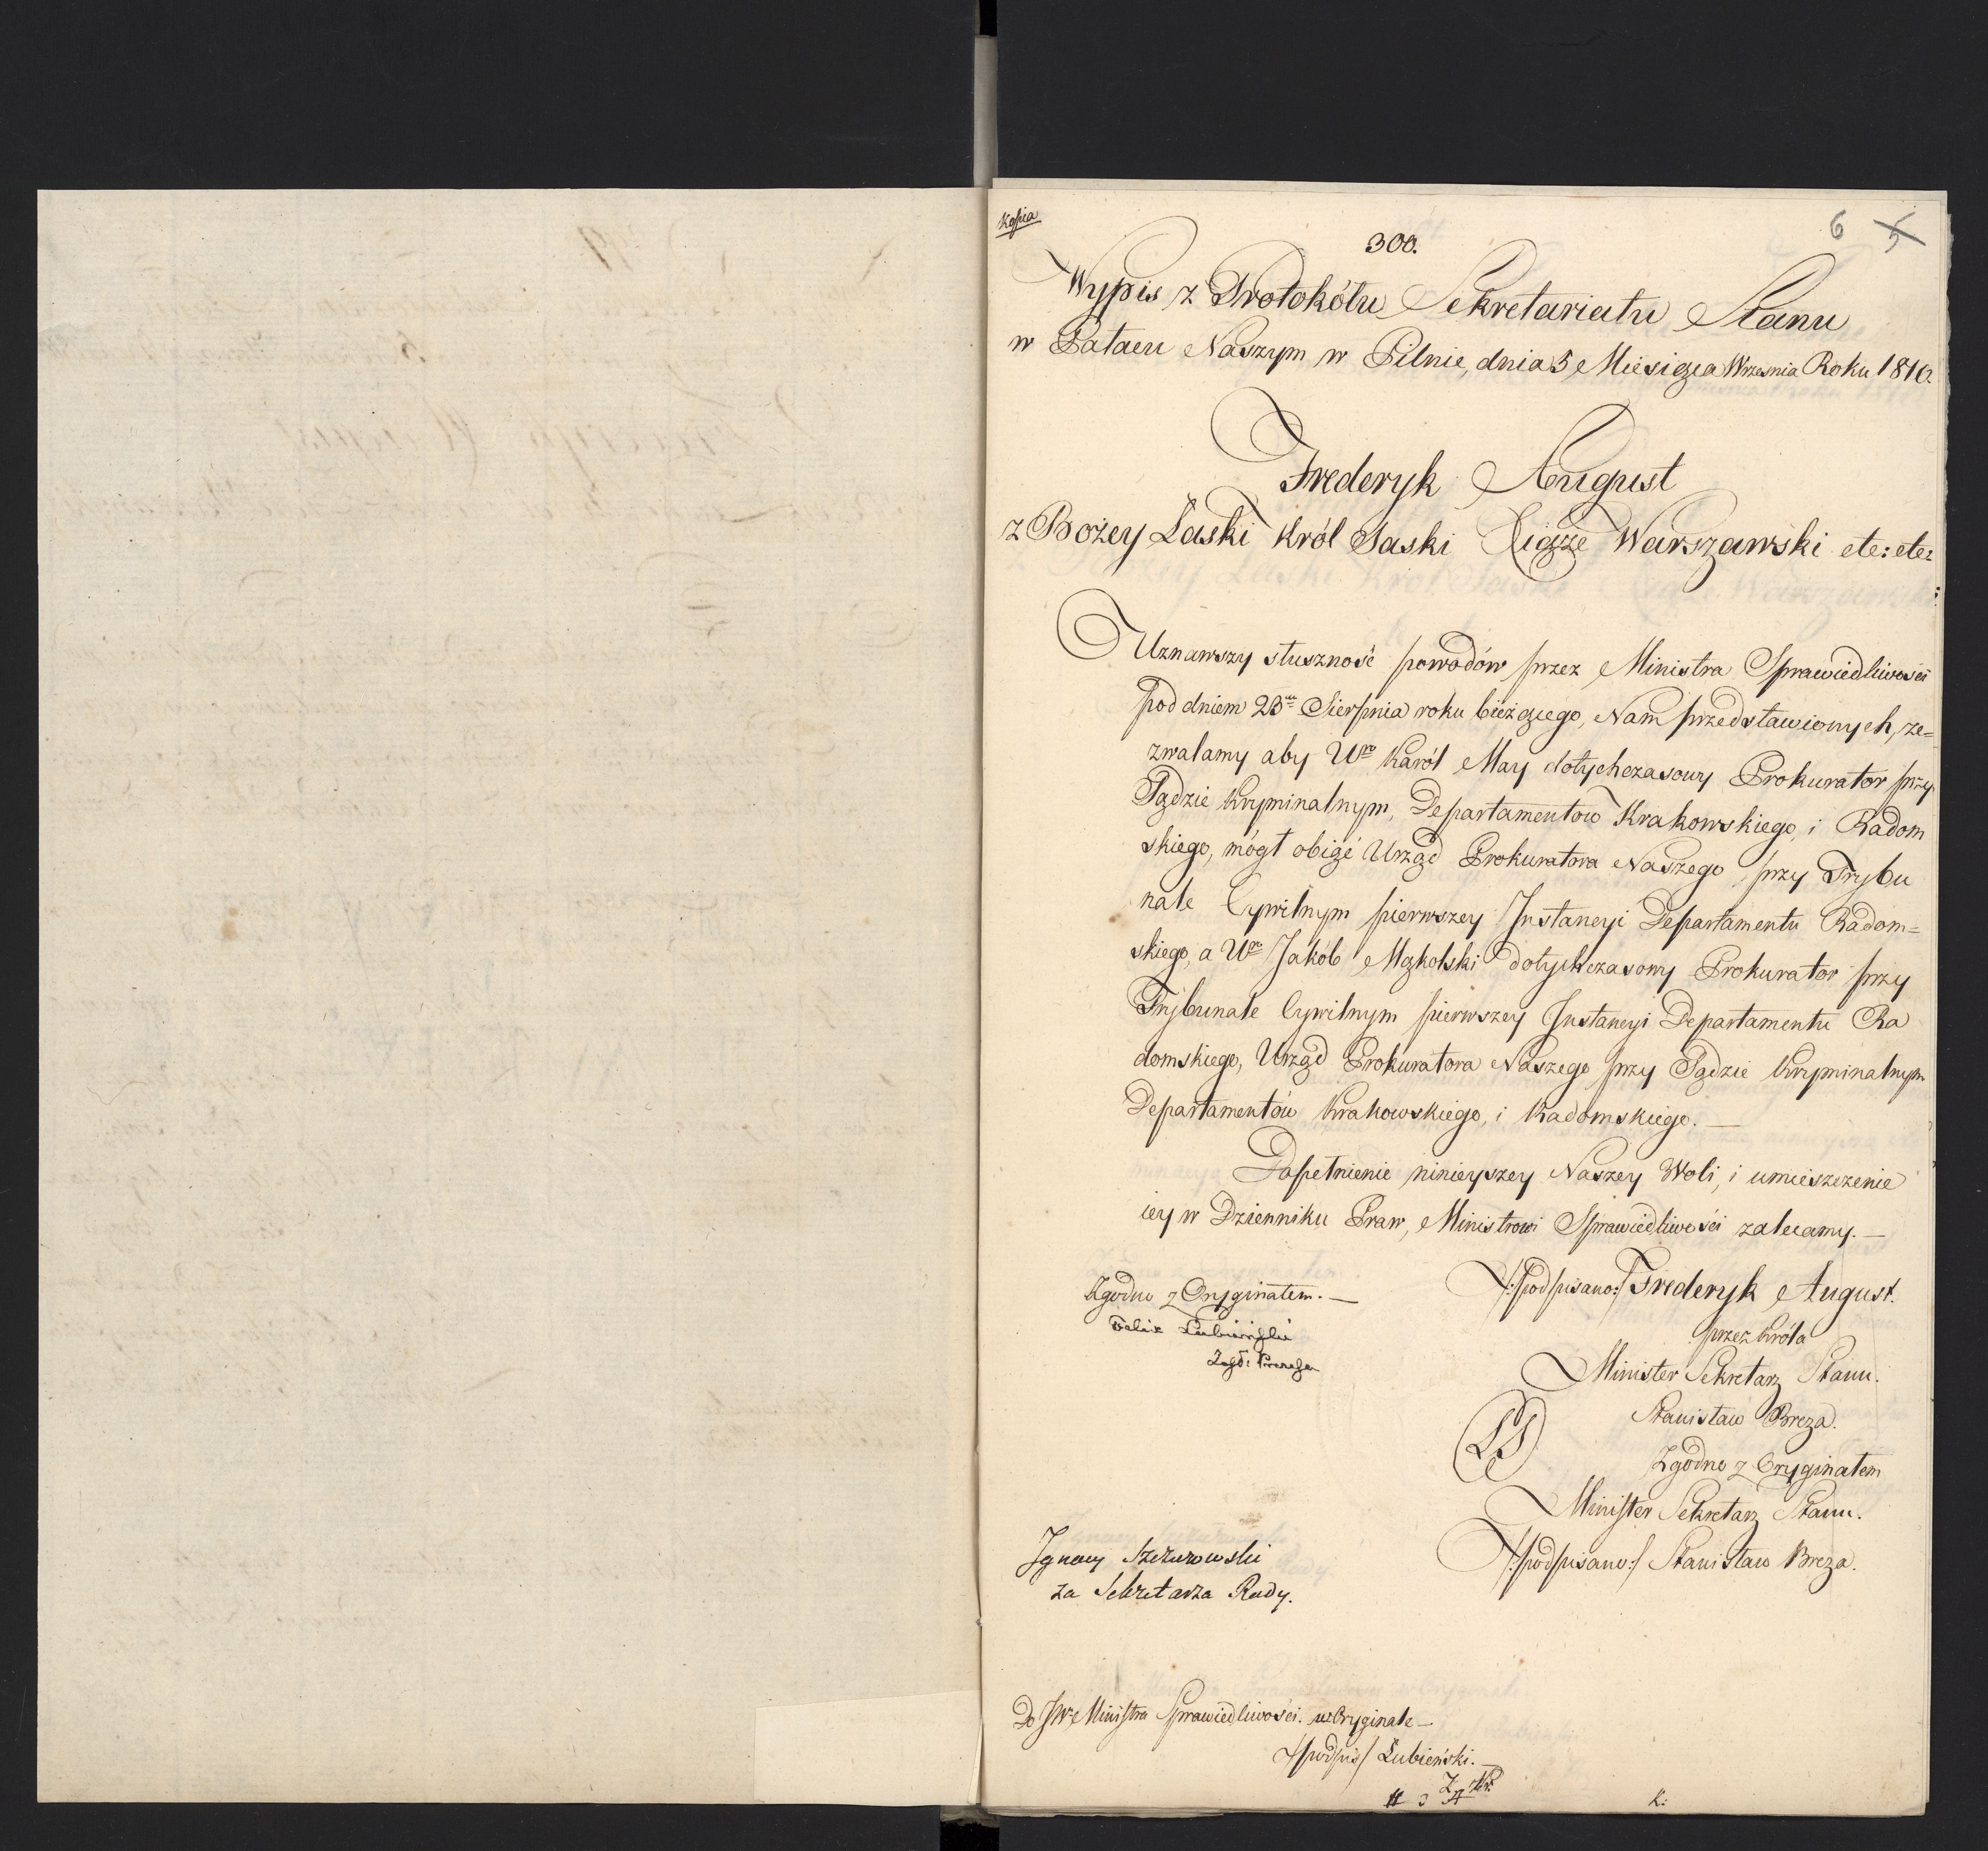 Kopia
300.
6 5
Wypis z Protokółu Sekretariatu Stanu
w Pałacu Naszym w Pilnie, dnia 5 Miesiąca Wrzesnia Roku 1810.
Frederyk August
z Bożey Łaski Król Saski Xiąże Warszawski etc: etc:
Uznawszy słuszność powodów przez Ministra Sprawiedliwości
pod dniem 23 Sierpnia roku bieżącego, Nam przedstawionych, ze=
zwalamy aby Ur Karól May dotychczasowy Prokurator przy
Sądzie Kryminalnym, Departamentów Krakowskiego, i Radom
skiego, mógł obiąć Urząd Prokuratora Naszego przy Trybu
nale Cywilnym pierwszey Instancyi Departamentu Radom=
skiego, a Ur Jakób Mąkolski dotychczasowy Prokurator przy
Trybunale Cywilnym pierwszey Instancyi Departamentu Ra
domskiego, Urząd Prokuratora Naszego przy Sądzie Kryminalnym
Departamentów Krakowskiego, i Radomskiego. —
Dopełnienie ninieyszey Naszey Woli, i umieszczenie
iey w Dzienniku Praw, Ministrowi Sprawiedliwości zalecamy. —
/:podpisano:/ Frederyk August.
przez Króla
Minister Sekretarz Stanu.
Stanisław Breza.
LS
Zgodno z Oryginałem
Minister Sekretarz Stanu.
/:podpisano:/ Stanisław Breza.
Zgodno z Oryginałem. —
Felix Łubieński
Ignacy Szczurowski
za Sekretarza Rady.
Do JW Ministra Sprawiedliwości. w Oryginale —
/podpis/ Łubieński. —
K: